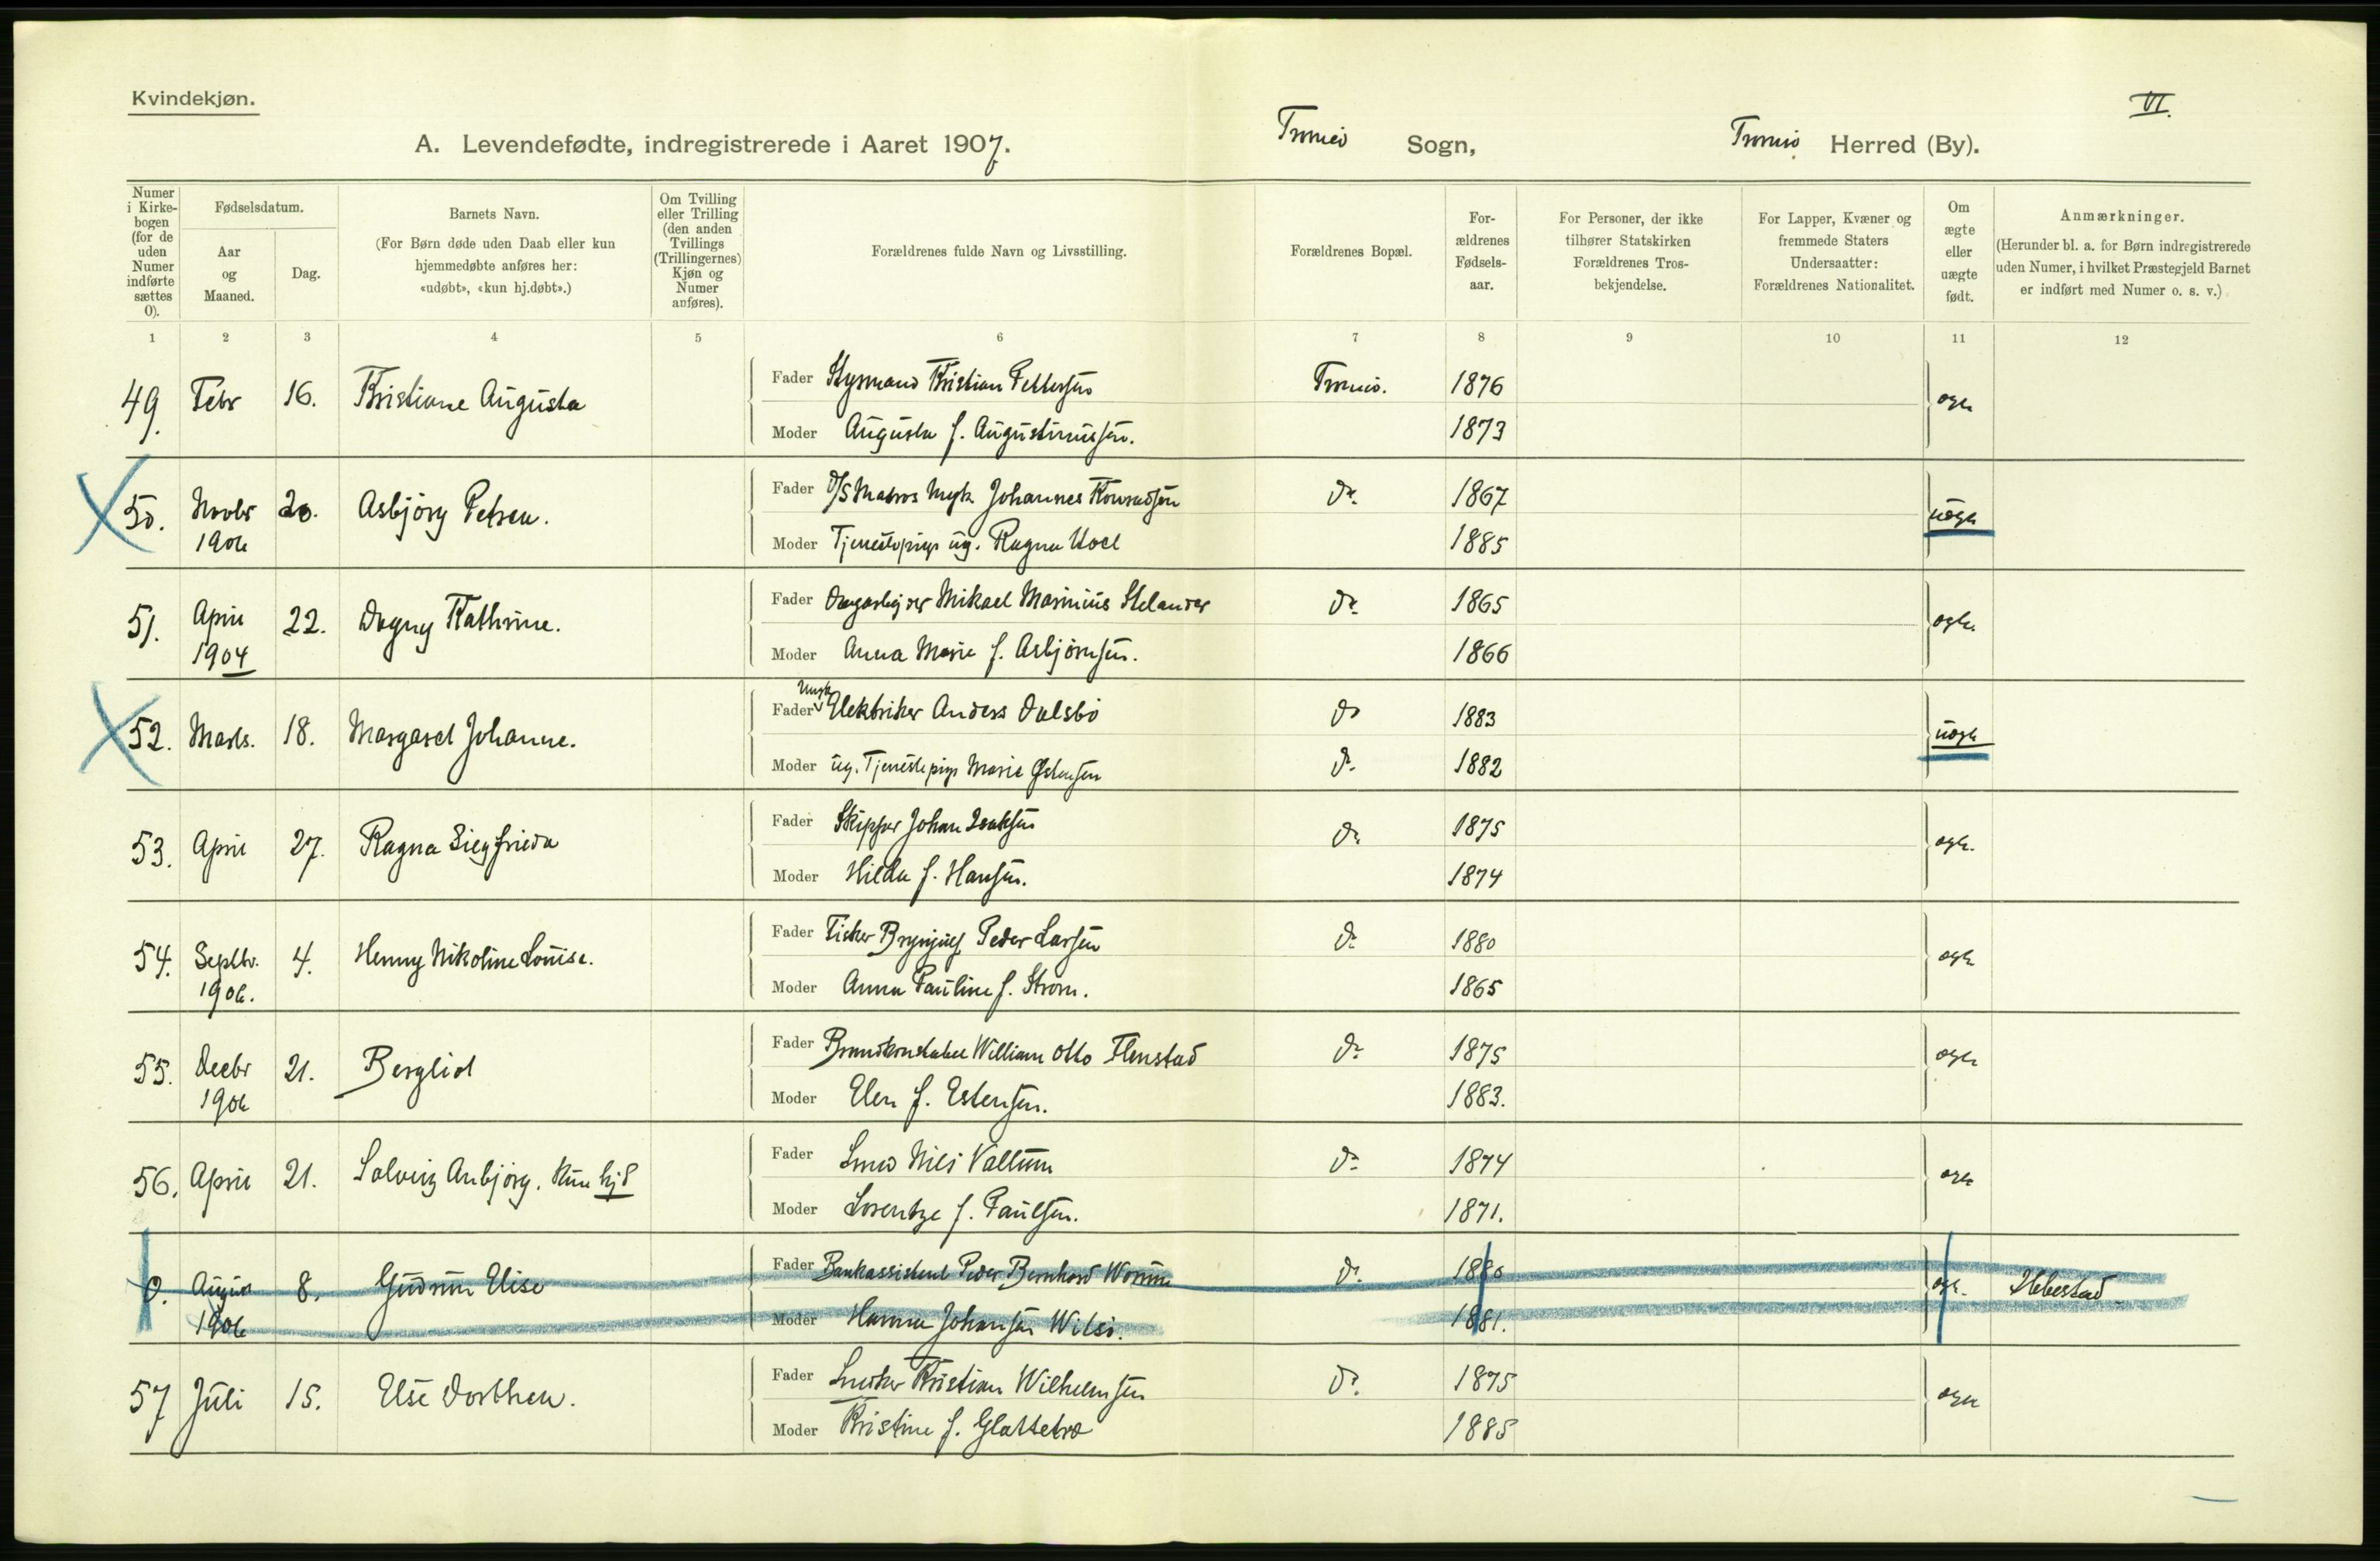 Kvindekjøn.
VI.
A. Levendefødte, indregistrerede i Aaret 1907. Tromsø Sogn, Tromsø Herred (By).
Numer i Kirke-bogen (for de uden Numer indførte sættes 0).
Fødselsdatum.
Aar og Maaned.
Dag.
Barnets Navn.
(For Børn døde uden Daab eller kun hjemmedøbte anføres her: «udøbt», «kun hj.døbt».)
Om Tvilling eller Trilling (den anden Tvillings (Trillingernes) Kjøn og Numer anføres).
Forældrenes fulde Navn og Livsstilling.
Forældrenes Bopæl.
For-ældrenes Fødsels-aar.
For Personer, der ikke tilhører Statskirken Forældrenes Tros-bekjendelse.
For Lapper, Kvæner og fremmede Staters Undersaatter: Forældrenes Nationalitet.
Om ægte eller uægte født.
Anmærkninger.
(Herunder bl. a. for Børn indregistrerede uden Numer, i hvilket Præstegjeld Barnet er indført med Numer o. s. v.)
1 2 3 4 5 6 7 8 9 10 11 12
49. Febr 16. Kristiane Augusta Fader Styrmand Kristian Pettersen Tromsø. 1876 ægte
Moder Augusta f. Augustinussen. 1873
50. Novbr 20. Asbjørg Petren. Fader D/S Matros Ungk. Johannes Konradsen do. 1867 uægte
1906 Moder Tjenestepige ug. Ragna Hoel 1885
51. April 22. Dagny Kathrine. Fader Mikael Marinius Stelander do. 1865 ægte.
1904 Moder Anna Marie f. Asbjørnsen. 1866
52. Marts. 18. Margaret Johanne. Fader Ungk. Elektriker Anders Dalsbø do 1883 uægte
Moder ug. Tjenestepige Marie Østensen do. 1882
53. April 27. Ragna Siegfrieda Fader Skipper Johan Isaksen do. 1875 ægte.
Moder Hilda f. Hansen. 1874
54. Septbr. 4. Henny Nikoline Louise. Fader Fisker Brynjulf Peder Larsen do. 1880 ægte
1906. Moder Anna Pauline f. Strøm. 1865
55. Decbr 21. Bergliot Fader Brandkonstabel William Otto Flenstad do. 1875 ægte
1906 Moder Elen f. Estensen. 1883.
56. April 21. Solveig Anbjørg. Kun hjd Fader Smed Nils Vallum do. 1874 ægte
Moder Lorentze f. Paulsen. 1871.
0. August 8. Gudrun Elise Fader Bankassistent Peder Bernhard Worum do. 1880 ægte. Ibbestad
1906 Moder Hanna Johansen Wilsø. 1881.
57 Juli 15. Else Dorthea. Fader Snedker Kristian Wilhelmsen do. 1875 ægte
Moder Kristine f. Glattetre 1885